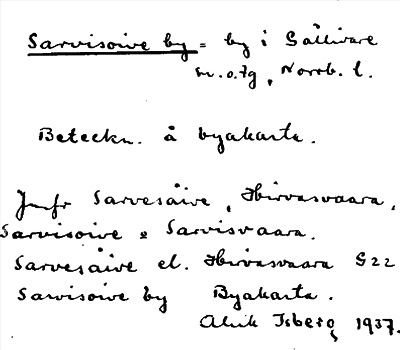 Sarvisoive by = by i Gällivare
sn. o. tg, Norrb. l.
Beteckn. å byakarta.
Jmfr Sarvesåive, Hirvasvaara,
Sarvisoive o Sarvisvaara.
Sarvesåive el. Hirvasvaara G22
Sarvisoive by Byakarta.
Isberg 1937.